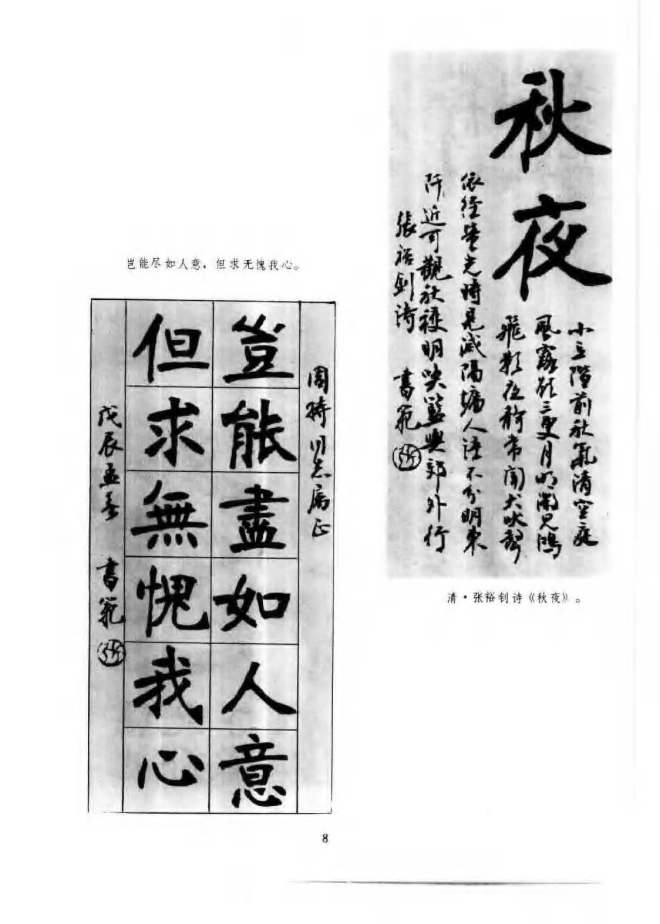 秋夜
小立階前秋氣清空庭
風露欲三更月明見鴻
飛影夜常聞犬吠聲
依徑螢光時見滅隔墉人語不分明東
阡近可觀秋穫明咲籃輿郊外行
張裕釗詩 書範
清·张裕钊诗《秋夜》。
岂能尽如人意，但求无愧我心。
周同志屬正
豈能盡如人意
但求無愧我心
戊辰孟春 書範
8